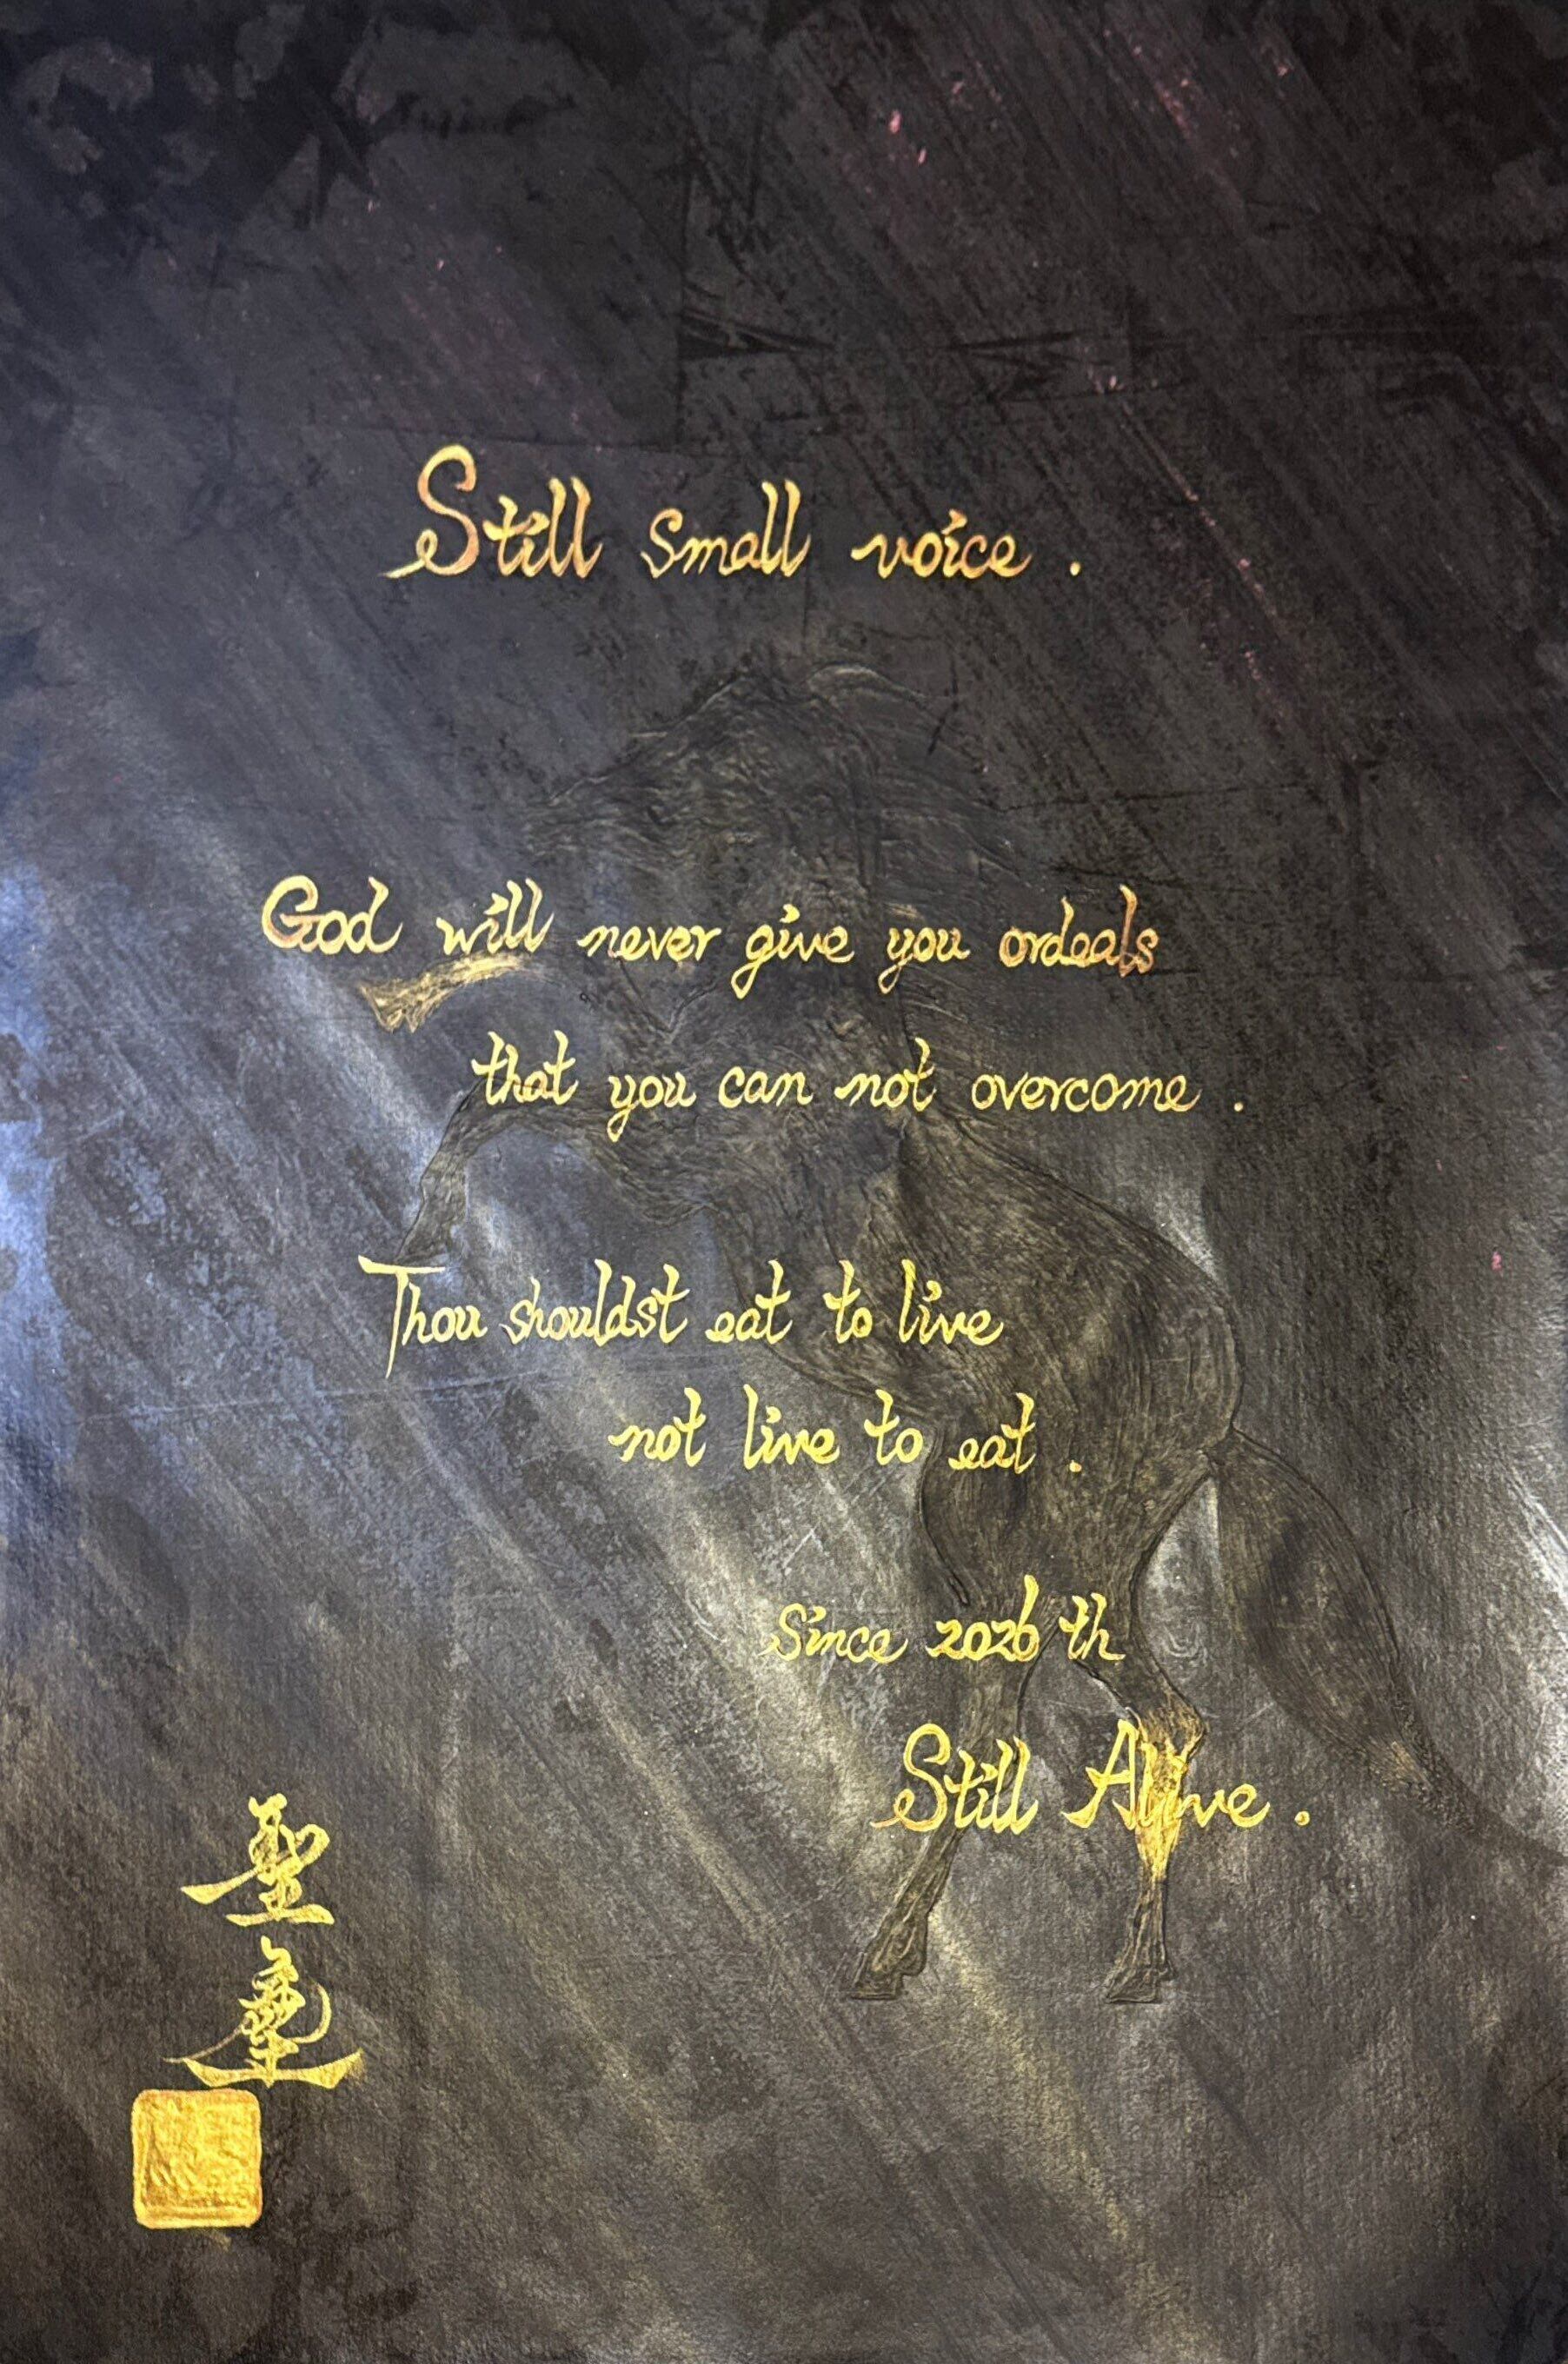 Still small voice .
God will never give you ordeals
that you can not overcome .
Thou shouldst eat to live
not live to eat .
Since 2026 th
Still Alive .
聖